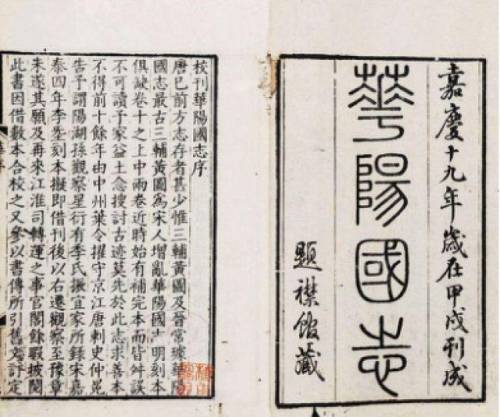 嘉慶十九年歲在甲戌刊成
華陽國志
題襟館藏
校刊華陽國志序
唐已前方志存者甚少惟三輔黃圖及晉常璩華陽
國志最古三輔黃圖為宋人增亂華陽國志明刻本
俱缺卷十之上中兩卷近時始有補完本而皆舛誤
不可讀予家益土念搜討古迹莫先於此志求善本
不得前十餘年由中州葉令擢守京江唐刺史仲冕
告予謂陽湖孫觀察星衍有李氏宜家所錄宋嘉
泰四年李刻本擬即借刊後以右遷觀察至豫章
未遂其願及再來江淮司轉運之事官閣餘暇披閱
此書因借數本合校之又參以書傳所引舊文評定